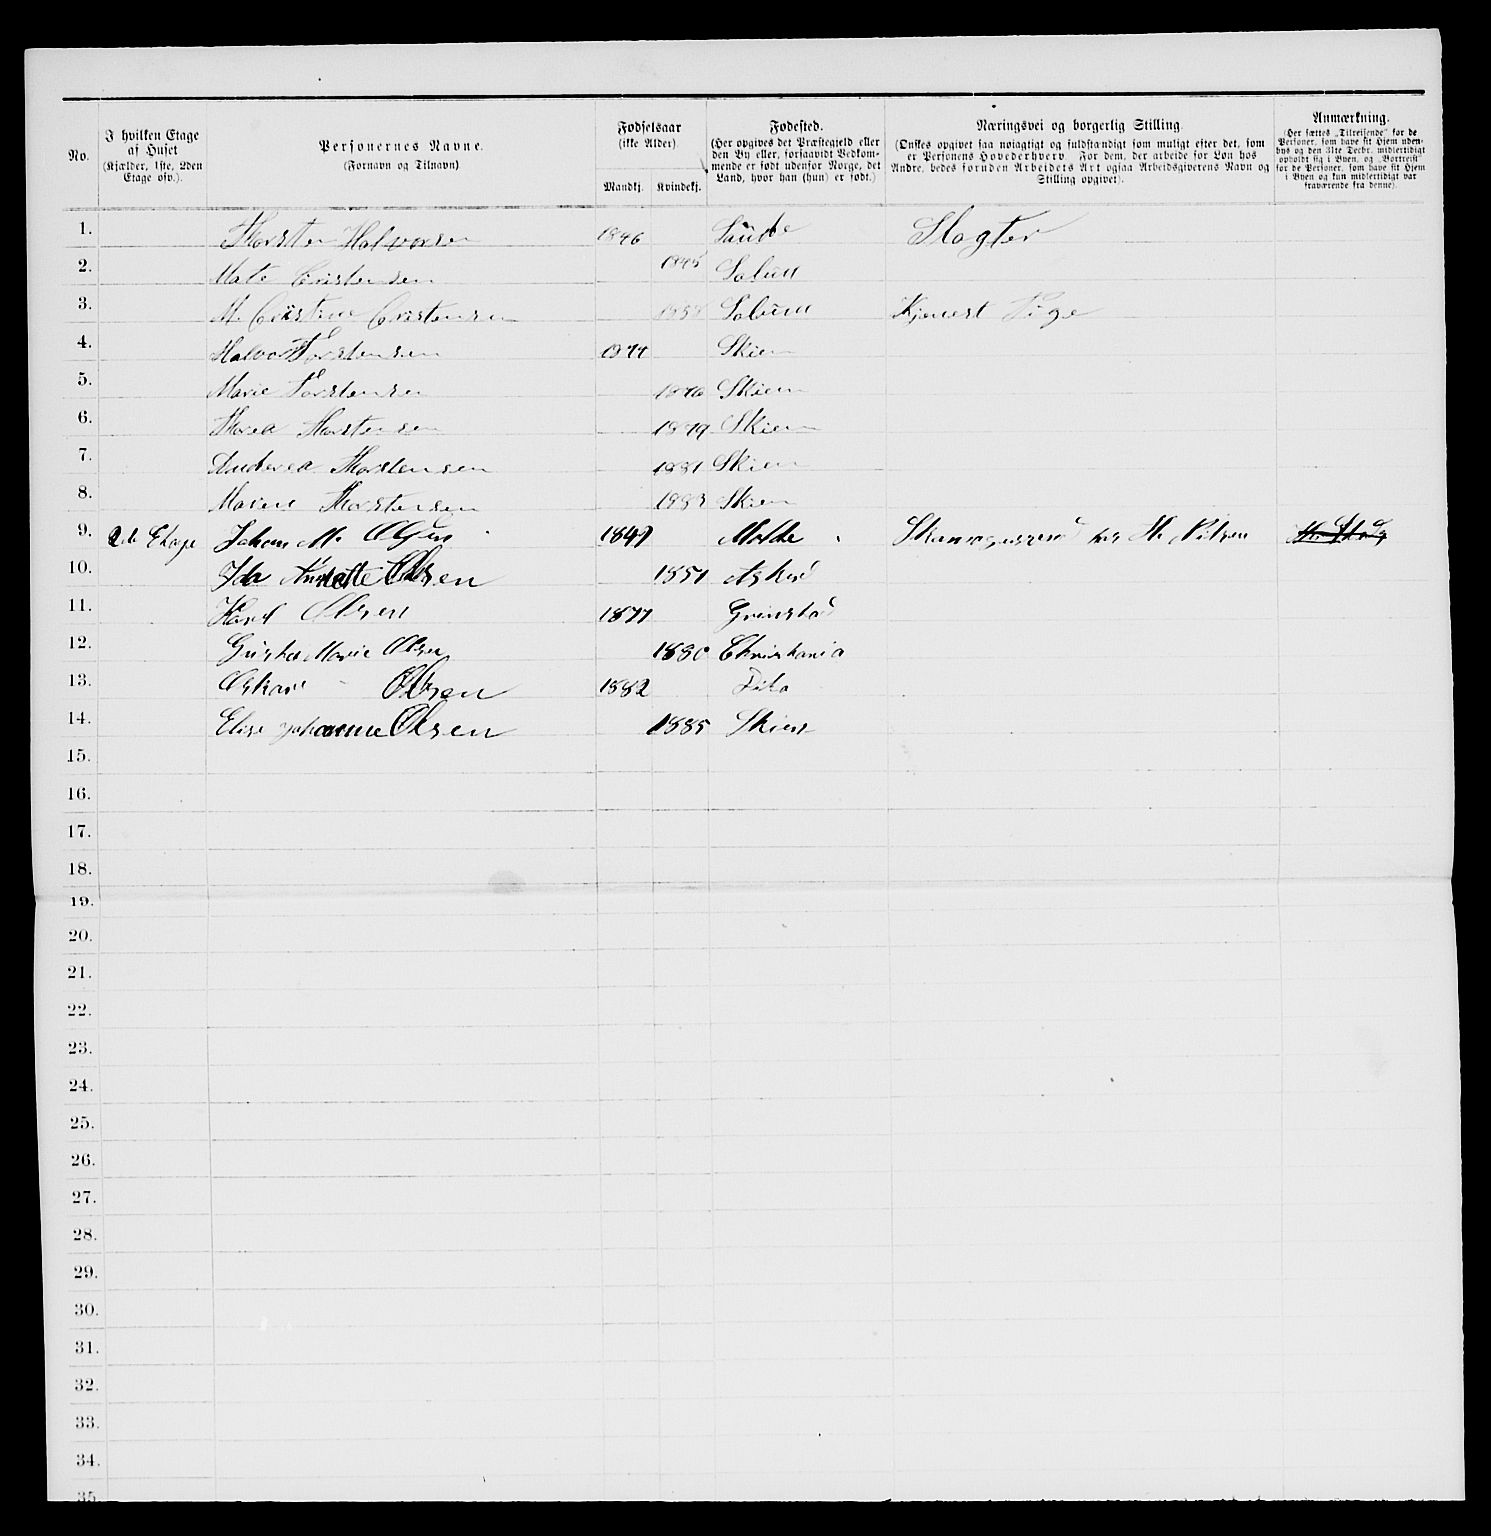 No.
I hvilken Etage
af Huset
(Kjælder, 1ste, 2den
Etage osv.).
Personernes Navne.
(Fornavn og Tilnavn).
Fødselsaar
(ikke Alder)
Mandkj. Kvindekj.
Fødested.
(Her opgives det Præstegjeld eller
den By eller, forsaavidt Vedkom-
mende er født udenfor Norge, det
Land, hvor han (hun) er født.)
Næringsvei og borgerlig Stilling.
(Ønskes opgivet saa nøiagtigt og fuldstændigt som muligt efter det, som
er Personens Hovederhverv. For dem, der arbeide for Løn hos
Andre, bedes foruden Arbeidets Art ogsaa Arbeidsgiverens Navn og
Stilling opgivet).
Anmærkning.
(Her sættes „Tilreisende" for de
Personer, som have sit Hjem uden-
bys og den 31te Decbr. midlertidigt
opholdt sig i Byen, og „Bortreist"
for de Personer, som have sit Hjem
i Byen og kun midlertidigt var
fraværende fra denne).
1. Thorsten Halvorsen 1846 Saude Slagter
2. Mate Cristensen 1845 Solum
3. M. Cristine Cristensen Solum Pige
4. Halvor Torstensen 1874 Skien
5. Marie Torstensen 1876 Skien
6. Thorea Thorstensen 1879 Skien
7. Anderea Thorstensen 1881 Skien
8. Marine Thorstensen 1883 Skien
9. 2de Etage Johan M. Olsen 1849 Molde
10. Ida Olsen 1851
11. Olsen 1877 Grimstad
12. Marie Olsen 1880 Christiania
13. Oskar Olsen 1882 Dito
14. Elise Johanne Olsen 1885 Skien
15.
16.
17.
18.
19.
20.
21.
22.
23.
24.
25.
26.
27.
28.
29.
30.
31.
32.
33.
34.
35.